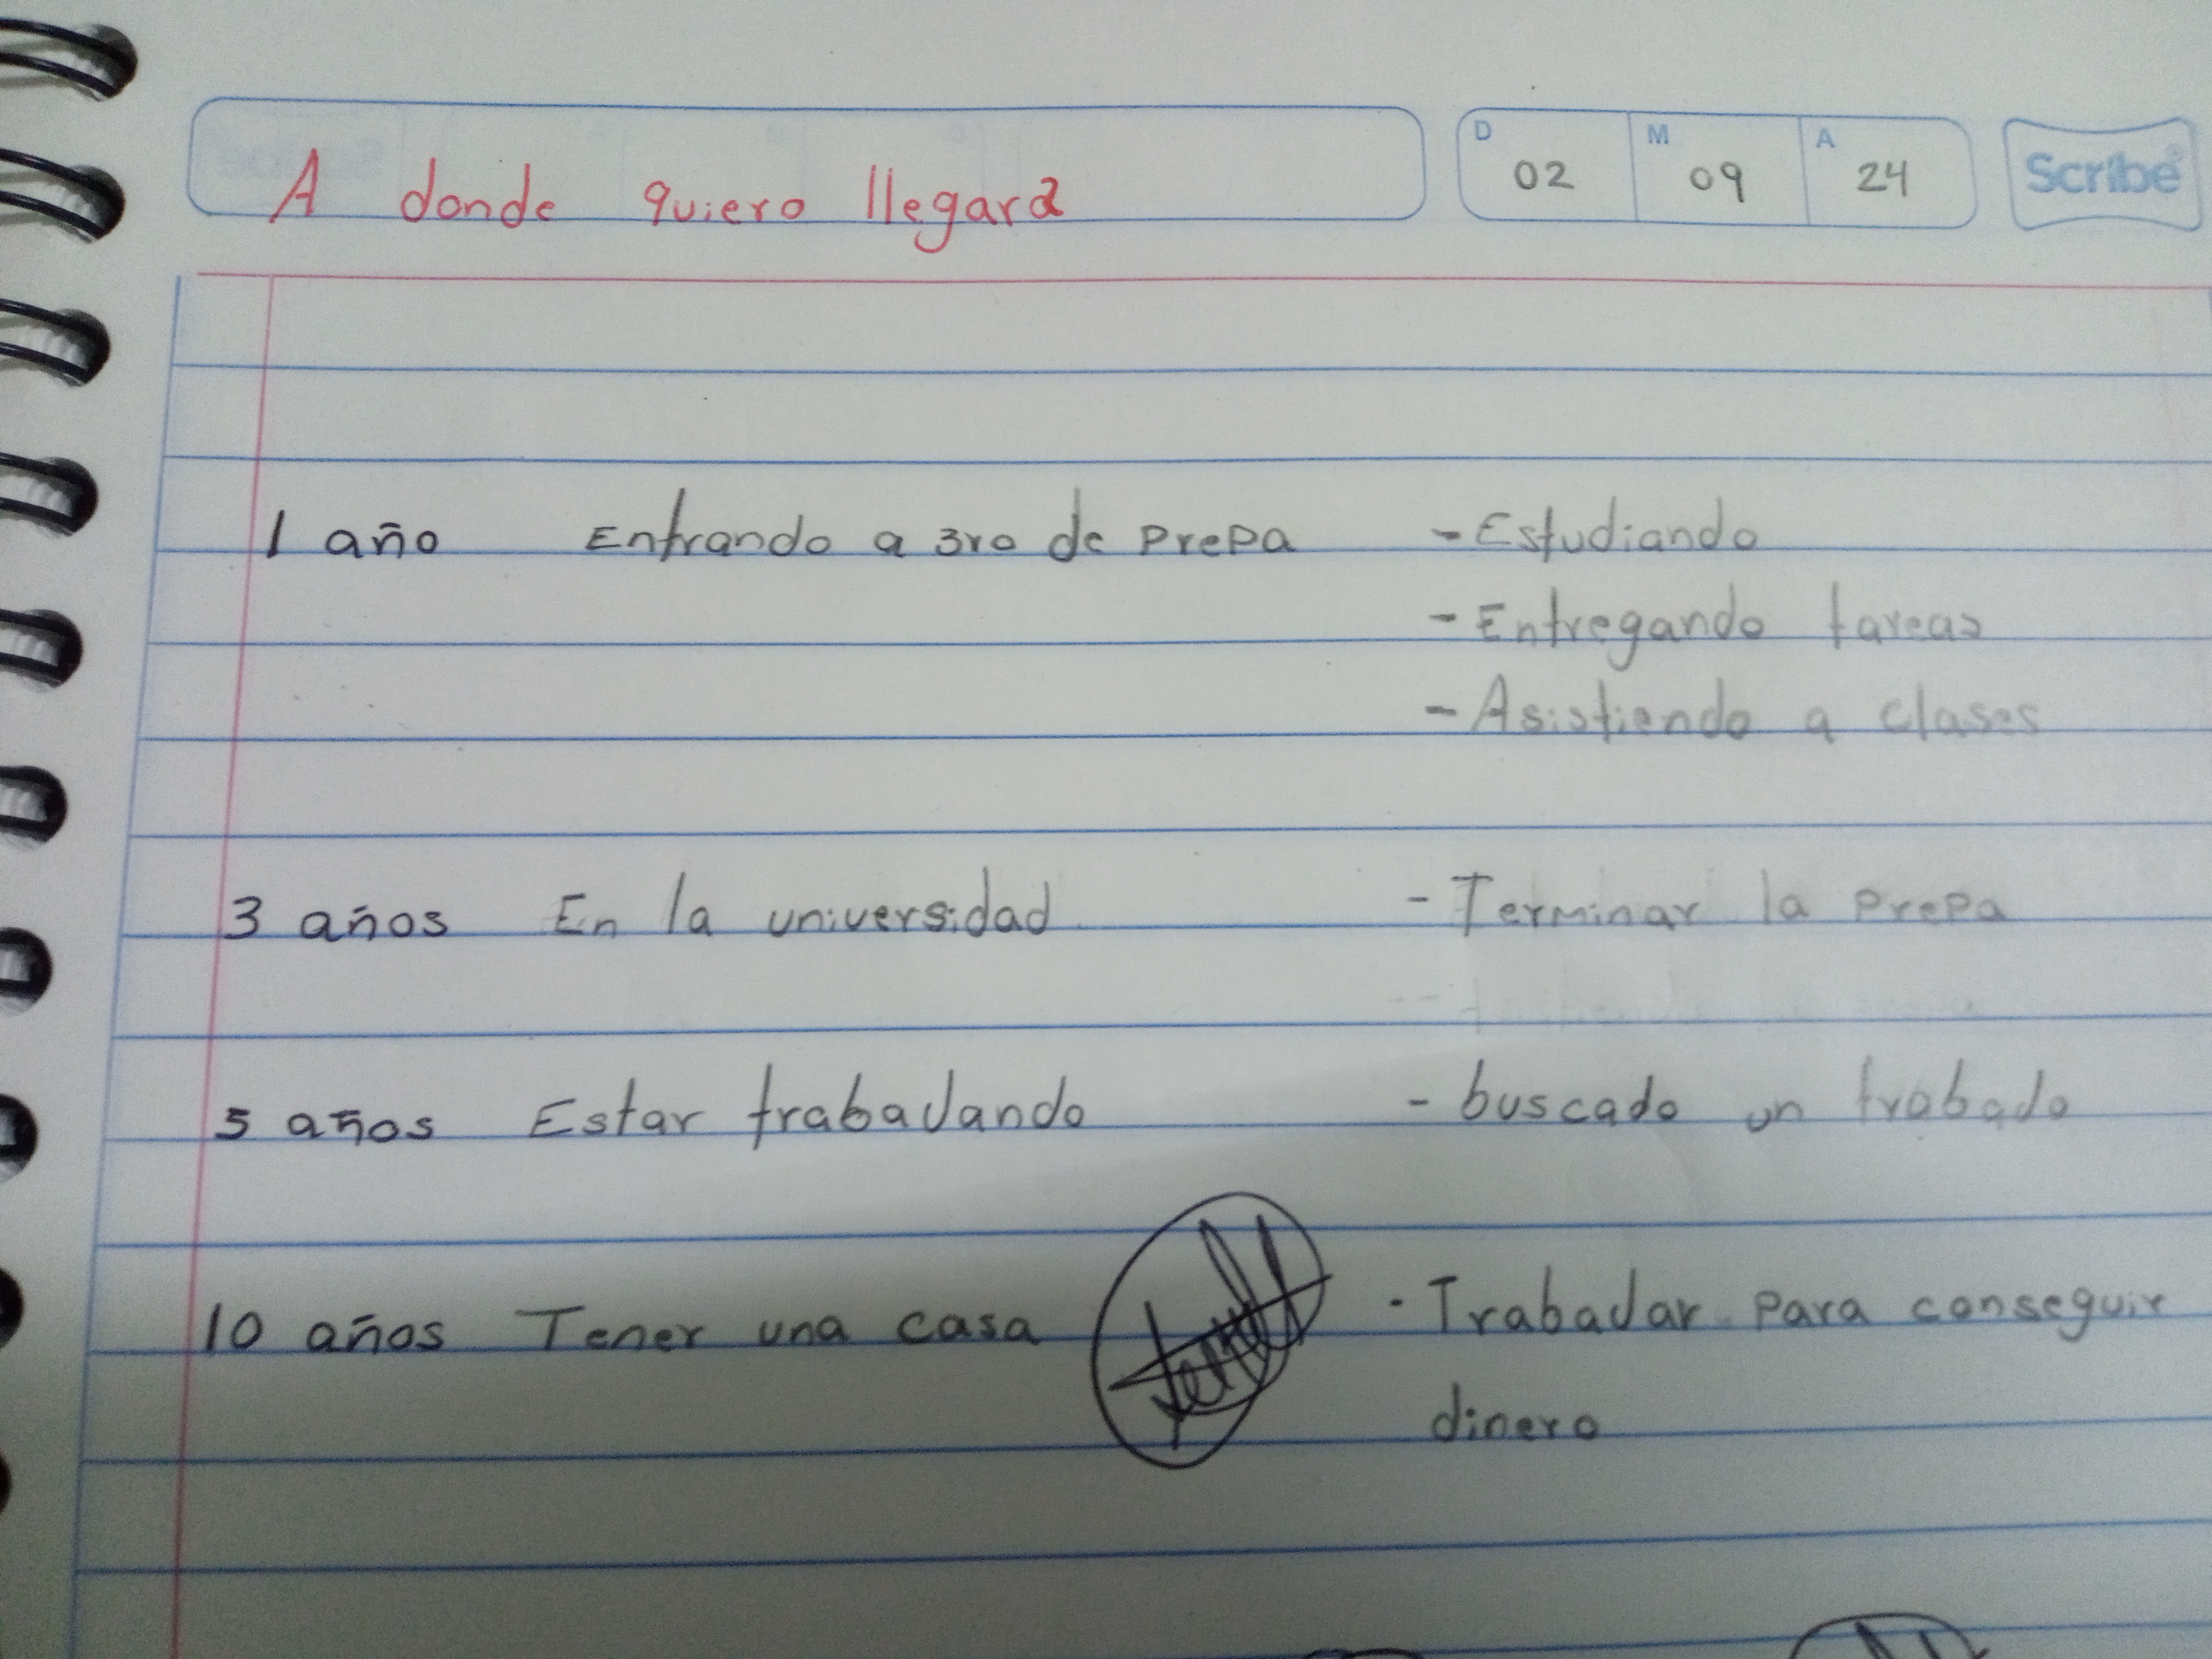 A donde quiero llegara
D 02 M 09 A 24
Scribe
1 año Entrando a 3ro de prepa - Estudiando
- Entregando tareas
- Asistiendo a clases
3 años En la universidad - Terminar la prepa
5 años Estar trabajando - buscado un trabado
10 años Tener una casa - Trabajar para conseguir
dinero